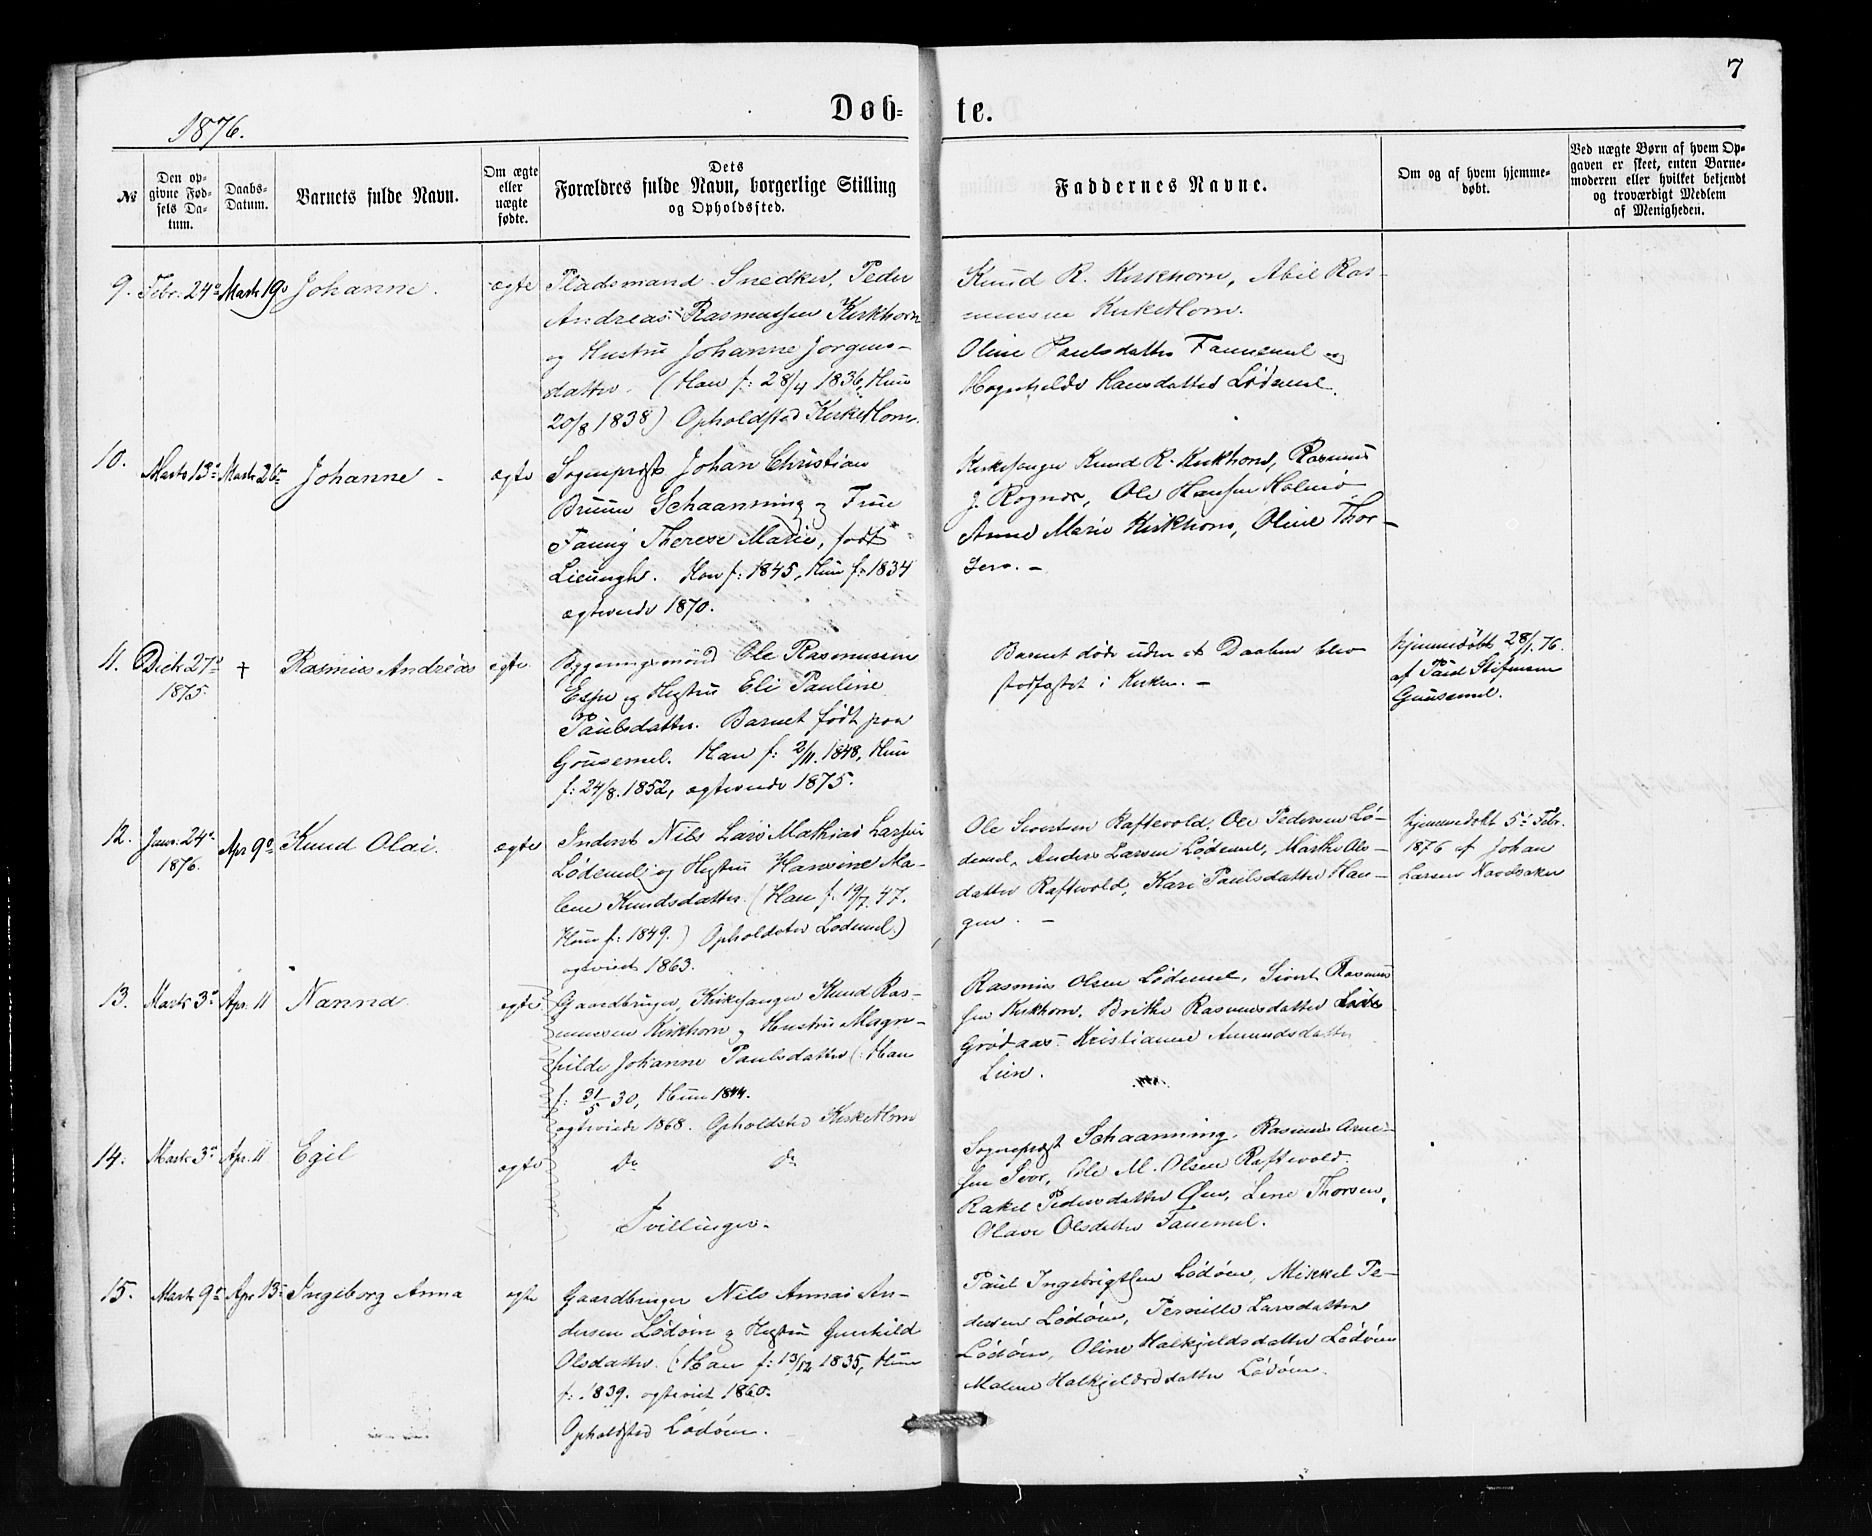 7
Døb= te.
1876.
№
Den op-
givne Fød-
sels Da-
tum.
Daabs-
Datum.
Barnets fulde Navn.
Om ægte
eller
uægte
fødte.
Dets
Forældres fulde Navn, borgerlige Stilling
og Opholdssted.
Faddernes Navne.
Om og af hvem hjemme-
døbt.
Ved uægte Børn af hvem Op-
gaven er skeet, enten Barne-
moderen eller hvilket bekjendt
og troværdigt Medlem
af Menigheden.
9. Febr. 24de Marts 19de Johanne. ægte
Pladsmand Snedker, Peder
Andreas Rasmussen Kirkhorn
og Hustru Johanne Jørgens-
datter. (Han f: 28/4 1836, Hun
20/8 1838) Opholdsted KirkeHorn.
Knud R. Kirkhorn, Abil Ras-
mussen KirkeHorn.
Oline Paulsdatter Fannemel og
Hansdatter Lødemel.
10. Marts 13de Marts 26de Johanne ægte
Sogneprest Johan Christian
Bruun Schaanning og Frue
Fanny Therese Marie, født
Lieungh. Han f: 1845, Hun f: 1834
ægteviede 1870.
Kirkesanger Knud R. Kirkhorn, Rasmus
J. Rognes, Ole Hansen Holmø
Anne Marie Kirkhorn, Oline Thor-
sen. -
11. Decb. 27de
1875. † Rasmus Andreas ægte
Bygningsmand Ole Rasmussen
Espe og Hustru Eli Pauline
Paulsdatter. Barnet født paa
Gousemel. Han f: 2/11. 1848, Hun
f: 24/8. 1852, ægteviede 1875.
Barnet døde uden at Daaben blev
stadfæstet i Kirken. -
hjemmedøbt 28/1. 76.
af Paul
Gousemel.
12. Janr. 24de
1876. Apr. 9de Knud Olai. ægte
Inderst Nils Lars Mathias Larsen
Lødemel og Hustru Hansine Ma-
lene Knudsdatter. (Han f. 19/7. 47.
Hun f: 1849.) Opholdsted Lødemel.)
ægteviet 1863.
Ole Sivertsen Raftevold, Ole Pedersen Lø-
demel, Anders Larsen Lødemel, Marthe Ols-
datter Raftevold, Kari Paulsdatter Hau-
gen. -
hjemmedøbt 5te Febr.
1876 af Johan
Larsen Navdsaker
13. Marts 3de Apr. 11 Nanna ægte
Gaardbruger, Kirkesanger Knud Ras-
mussen Kirkhorn og Hustru Magn-
hilde Johanne Paulsdatter (: Han
f: 31/5 30, Hun 1844.
ægteviede 1868. Opholdsted KirkeHorn
Rasmus Olsen Lødemel, Sivert Rasmus-
sen Kirkhorn. Brithe Rasmusdatter
Grodaas. Kristianne Amundsdatter
Lien.
14. Marts 3de Apr. 11 Egil ægte
do do
Tvillinger.
Sogneprest Schaanning, Rasmus Arne-
sen Tvor, Ole M. Olsen Raftevold.
Rakel Pedersdatter Øen, Lene Thorsen,
Olave Olsdatter Fannemel.
15. Marts 9de Apr 13de Ingeborg Anna ægte
Gaardbruger Nils Annas An-
dersen Lødøen og Hustru Gunhild
Olsdatter. (: Han f: 13/12 1835, Hun
f: 1839. ægteviet 1860.
Opholdsted Lødøen.
Paul Ingebrigtsen Lødøen, Mikkel Pe-
dersen Lødøen, Pernille Larsdatter
Lødøen, Oline Halkjeldsdatter Lødøen
Malene Halkjeldsdatter Lødøen.